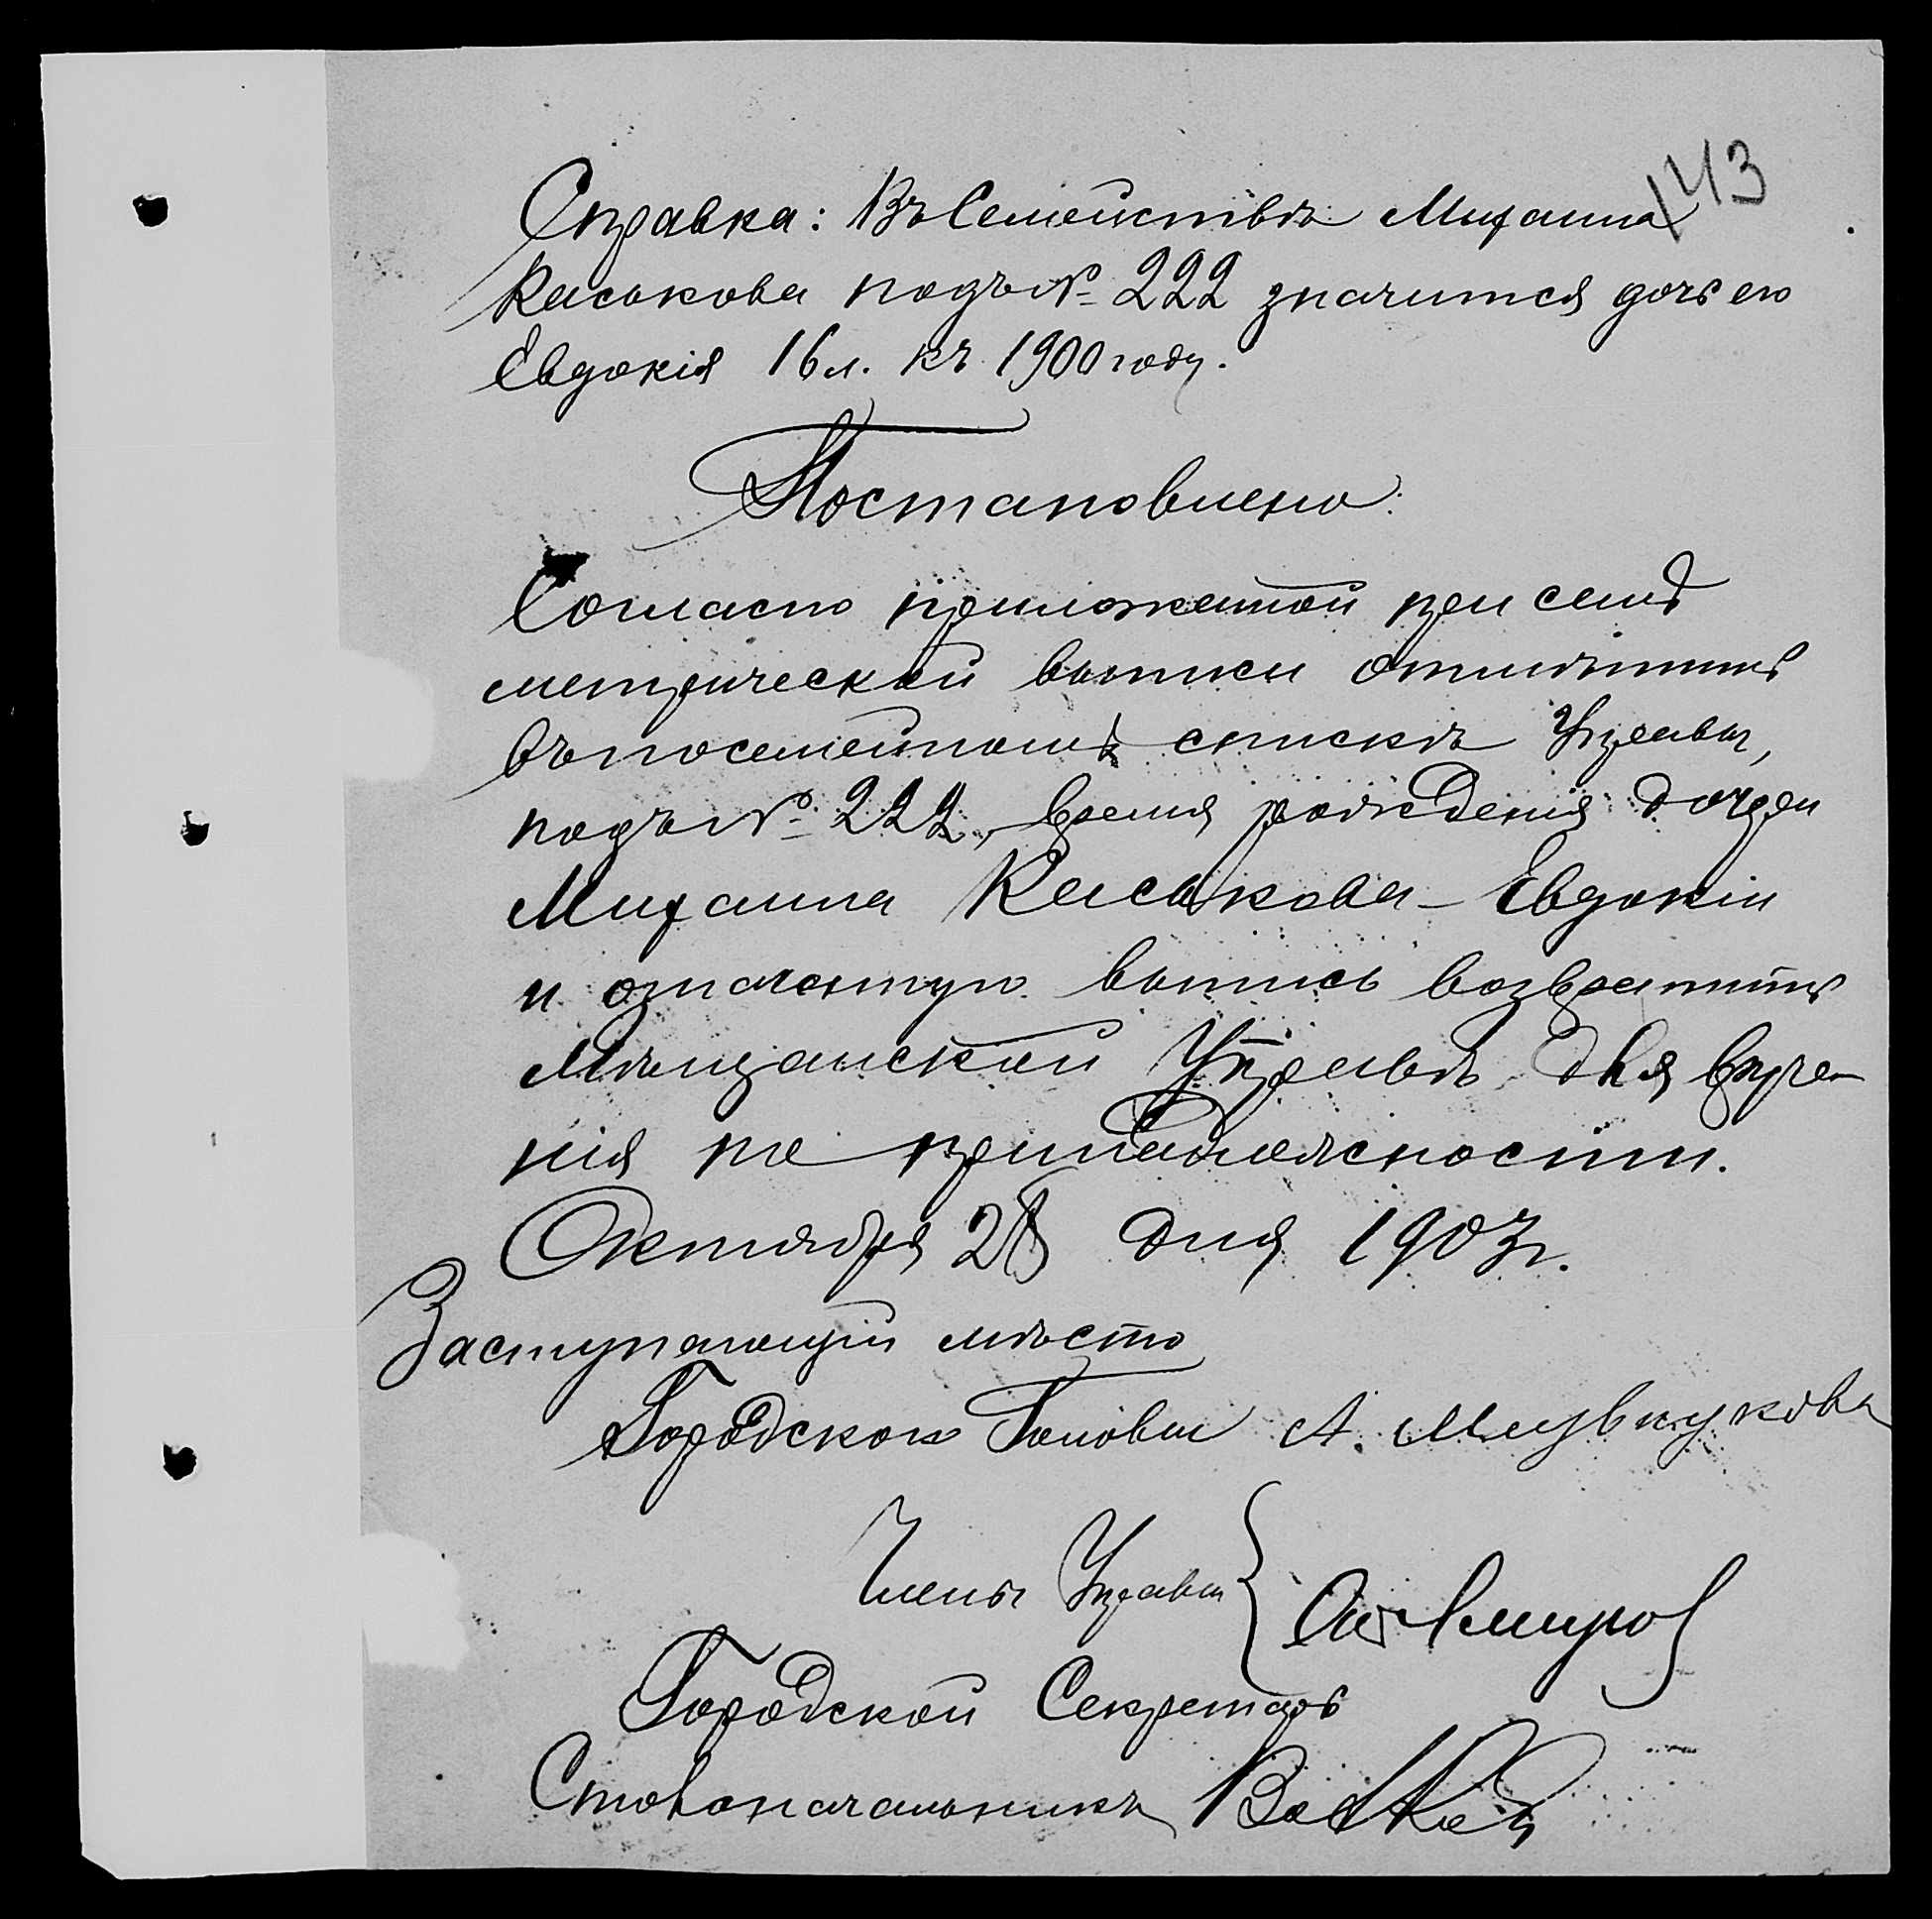 143
Справка: Въ Семействѣ Михаила
Каськова подъ № 222 значится дочь его
Евдокія 16 л. къ 1900 году.
Постановлено:
Согласно приложенной при семъ
метрической выписи отмѣтить
въ посемейномъ спискѣ Управы,
подъ № 222, время рожденія дочери
Михаила Каськова - Евдокіи
и означенную выпись возвратить
Мѣщанской Управѣ для вруче-
нія по принадлежности.
Октября 28 дня 1903 г.
Заступающій мѣсто
Городского Головы А.
Члены Управы
Городской Секретарь
Столоначальникъ